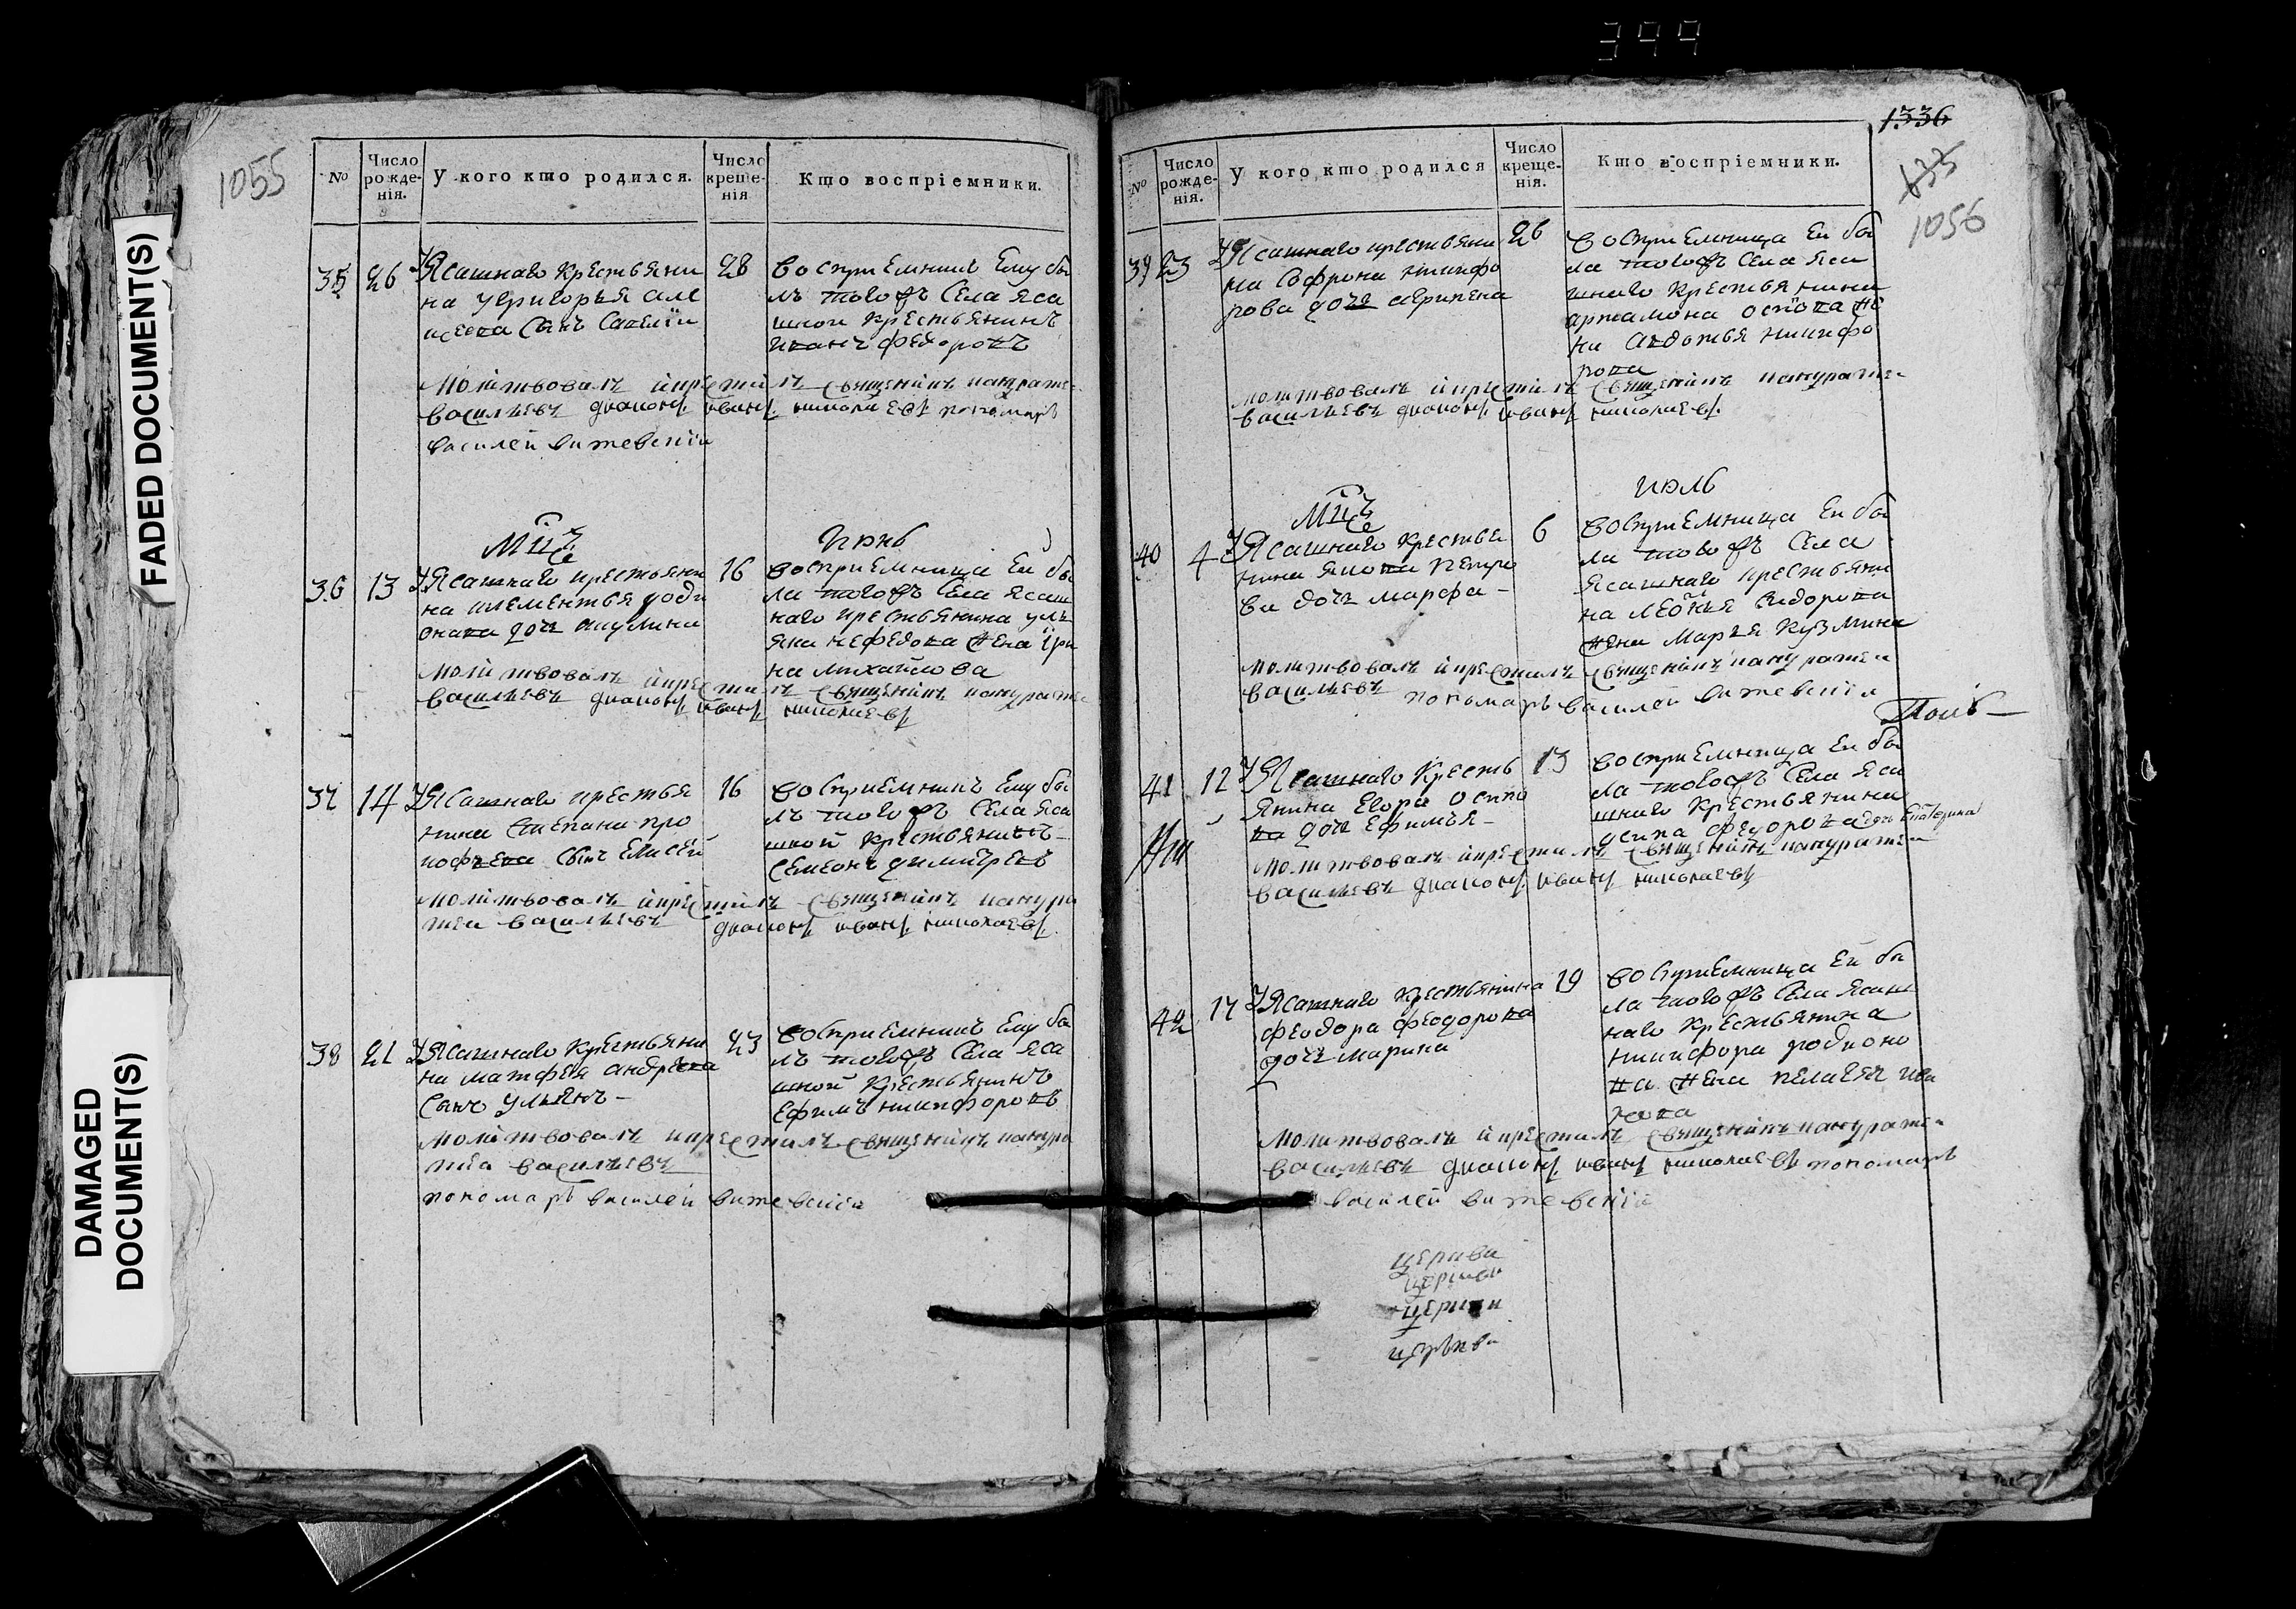 399
FADED DOCUMENT(S)
DAMAGED
DOCUMENT(S)
1055
№
Число рожде-нія.
У кого кто родился.
Число креще-нія
Кто воспріемники.
35 26 У Ясашнаго крестьяни
на Григорья Але
ксеева сынъ Савелїй
28
воспри емникъ Ему бы
лъ тогожъ Села яса
шной крестьянинъ
Иванъ Федоровъ
молитвовалъ икрестилъ священикъ
васильевъ диаконъ иванъ николаевъ пономарь
василей
Мцъ Июнь
36 13 У Ясашнаго крестьяни
на Клементья роди
онова дочь Акулина
16
восприемница Ей бы
ла тогожъ Села ясаш
наго крестьянина уль
яна нефедова жена їри
на михайлова
молитвовалъ икрестилъ священикъ
васильевъ диаконъ иванъ николаевъ
37 14 У Ясашнаго крестья
нина Степана про
кофьева сынъ Елисей
16
восприемникъ Ему бы
лъ тогожъ Села яса
шной крестьянинъ
Семенъ димитревъ
молитвовалъ икрестилъ священикъ
васильевъ диаконъ иванъ николаевъ
38 21 У Ясашнаго крестьяни
на матфея андреева
сынъ ульянъ
23
восприемникъ Ему бы
лъ тогожъ Села яса
шной крестьянинъ
Ефимъ никифоровъ
молитвовалъ икрестилъ священикъ
васильевъ
пономарь василей
1336
1056
№
Число рожде-нія.
У кого кто родился
Число креще-нія.
Кто воспріемники.
39 23 У Ясашнаго крестьяни
на Софрона никифо
рова дочь агрипена
26
восприемница Ей бы
ла тогожъ Села яса
шнаго крестьянина
артамона осипова же
на Авдотья никифо
рова
молитвовалъ икрестилъ священикъ
васильевъ диаконъ иванъ николаевъ
Мцъ июль
40 4 У Ясашнаго крестья
нина якова петро
ва дочь марфа
6
восприемница Ей бы
ла тогожъ Села
Ясашнаго крестьяни
на Сидорова
жена Марья Кузмина
молитвовалъ икрестилъ священикъ
васильевъ пономарь василей
41 12 У Ясашнаго кресть
янина Егора осипо
ва дочь Ефимья
13
восприемница Ей бы
ла тогожъ Села яса
шнаго крестьянина
осипа федорова дочь Екатерина
молитвовалъ икрестилъ священикъ
васильевъ диаконъ иванъ николаевъ
42 17 У Ясашнаго крестьянина
феодора феодорова
дочь марина
19
восприемница Ей бы
ла тогожъ Села ясаш
наго крестьянина
никифора родионо
ва жена пелагея ива
нова
молитвовалъ икрестилъ священикъ
васильевъ диаконъ иванъ николаевъ пономарь
василей
церкви
церкви
церкви